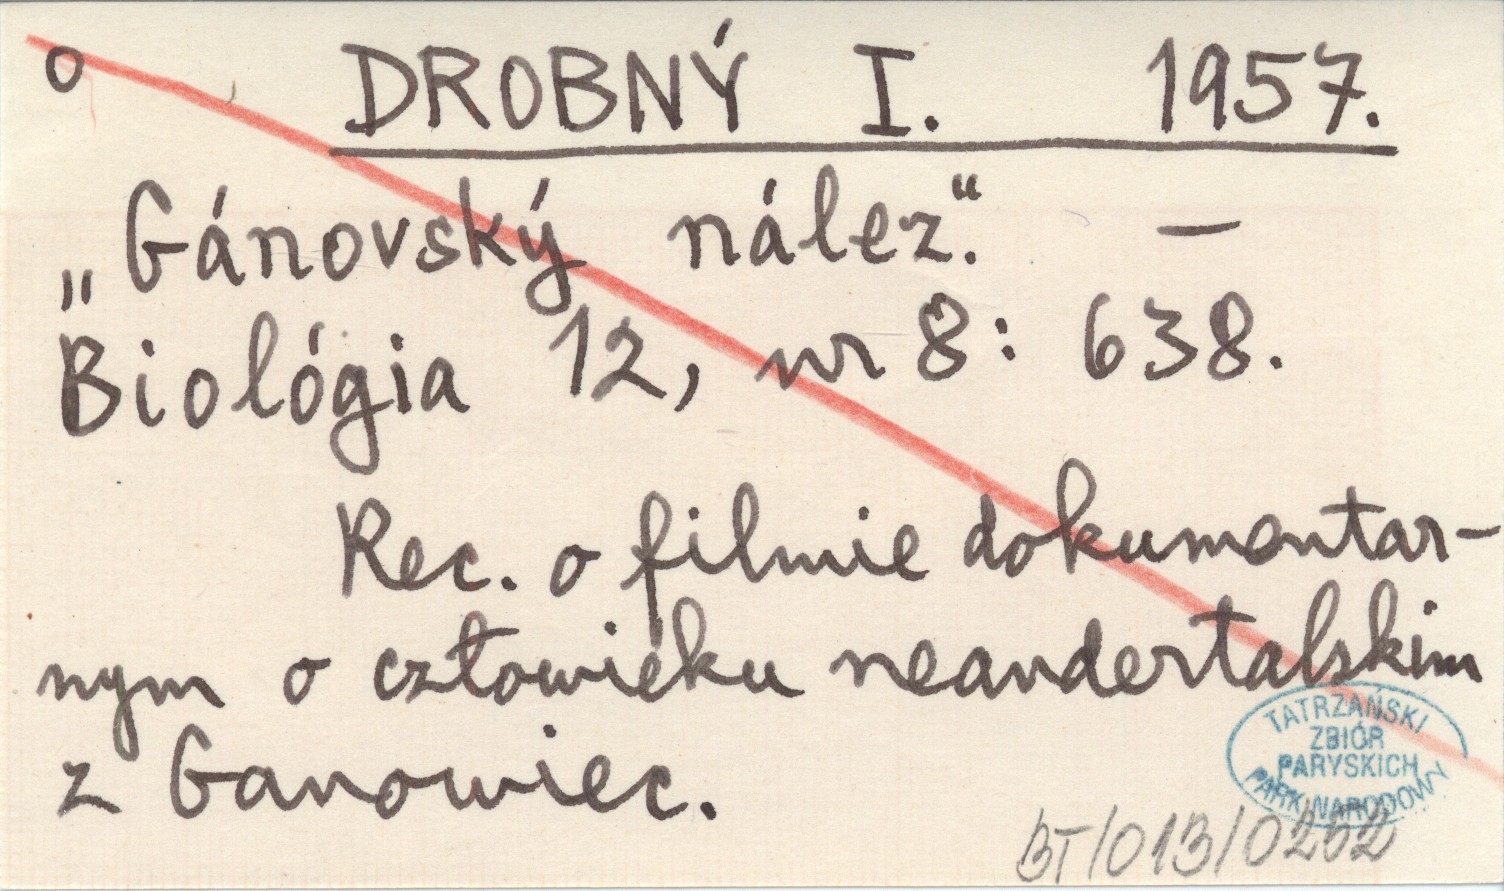 o DROBNÝ I. 1957.
„Gánovský nález“. —
Biológia 12, nr 8: 638.
Rec. o filmie dokumentar-
nym o człowieku neandertalskim
z Ganowiec.
TATRZAŃSKI
ZBIÓR
PARYSKICH
PARK NARODOWY
BT/013/0262